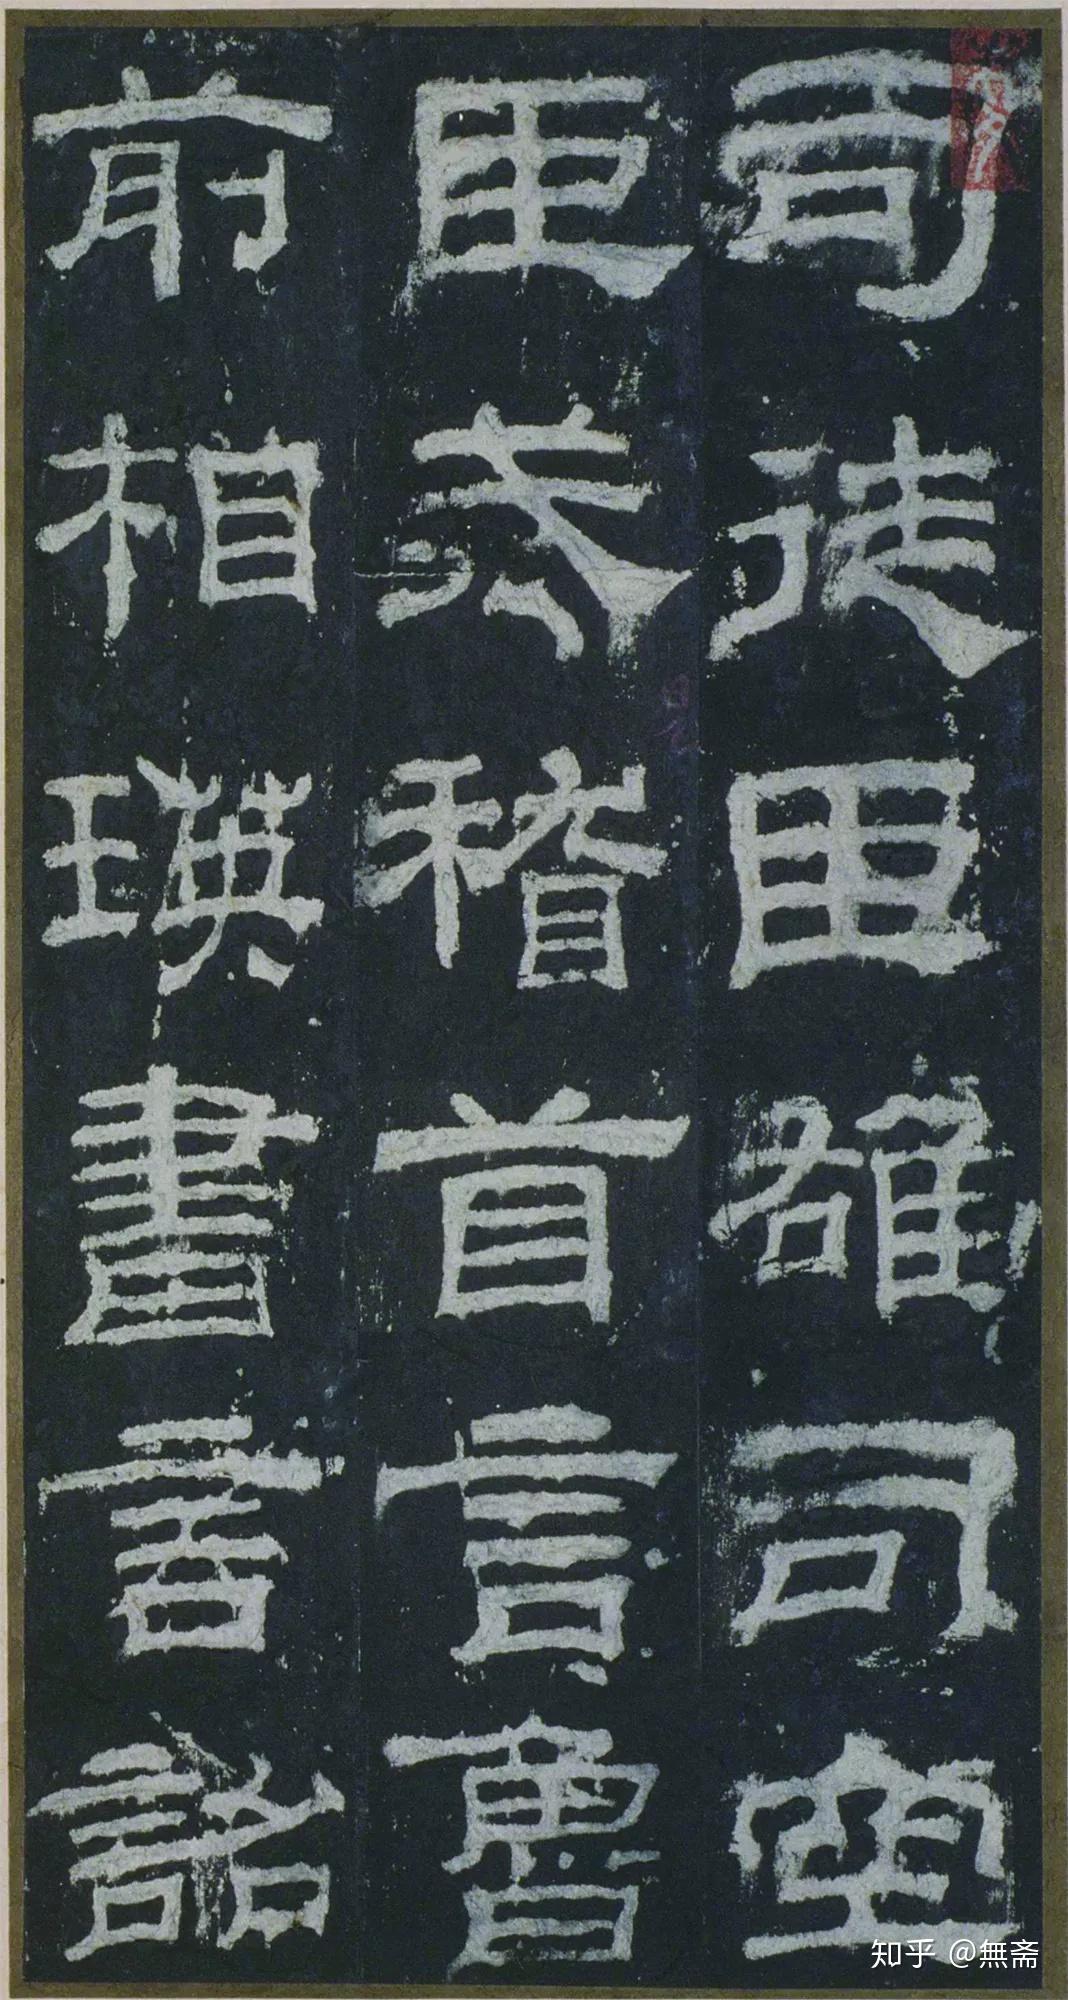 司徒臣雄司空
臣戒稽首言魯
前相瑛書言詔
知乎 @無斋